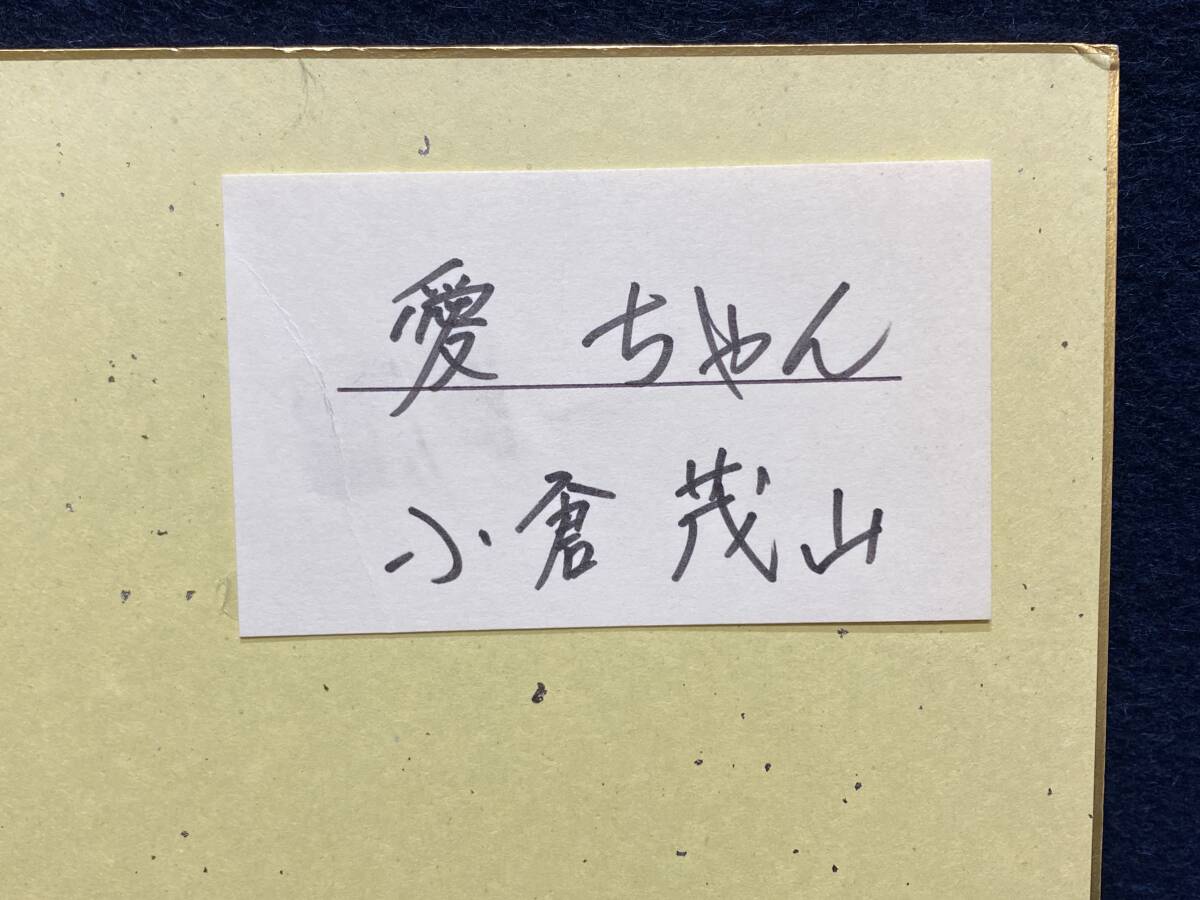 愛 ちゃん
小倉 茂山